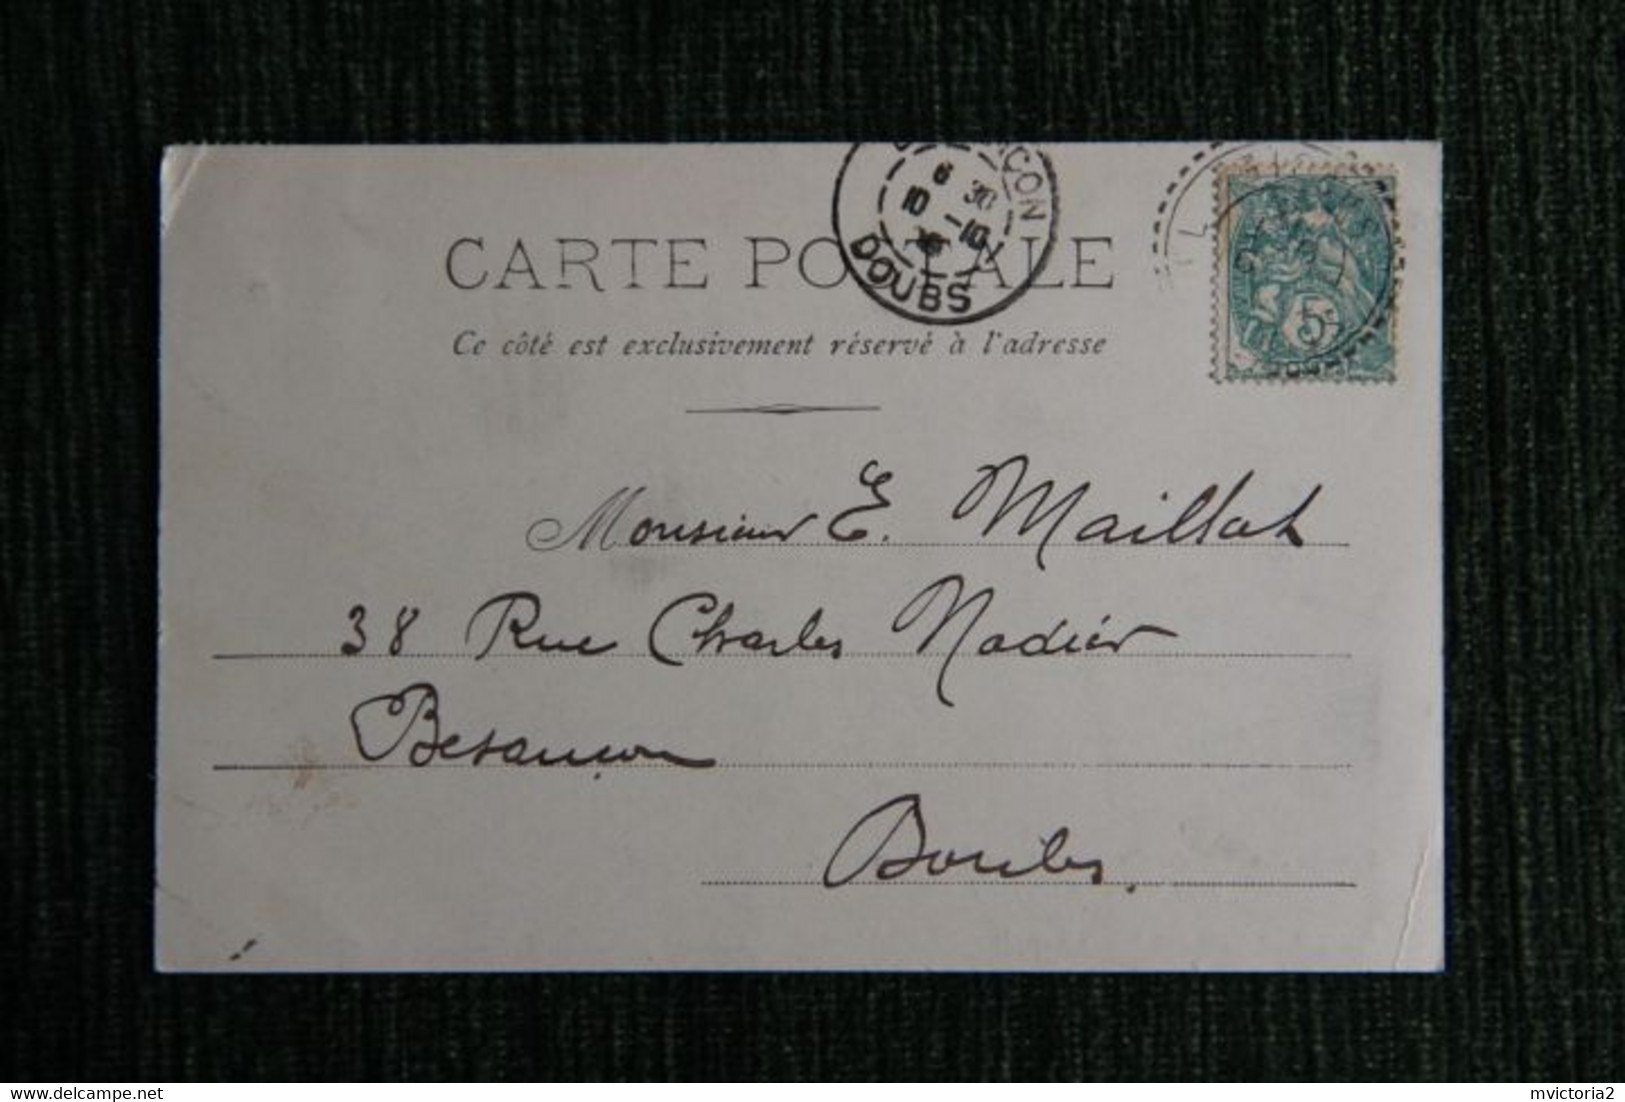 DOUBS
CARTE POSTALE
5
Ce côté est exclusivement réservé à l'adresse
Monsieur E. Maillot
38 Rue Charles Nodier
Besançon
Doubs.
www.delcampe.net
mvictoria2